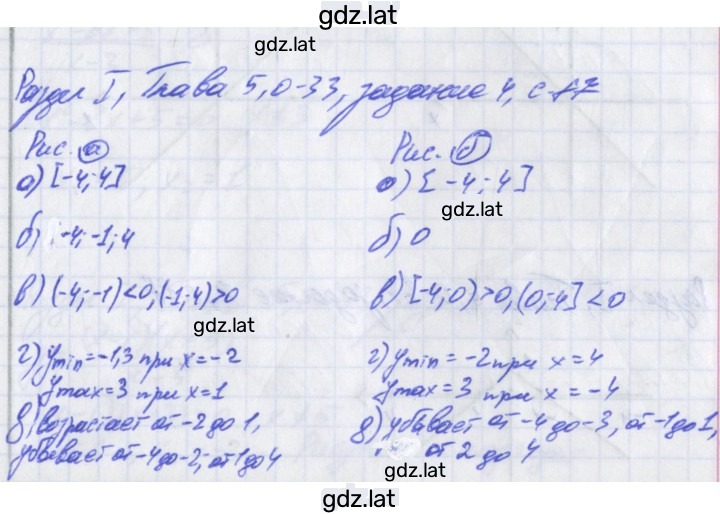 gdz.lat
gdz.lat
Раздел I, Глава 5, О-33, задание 4, с 17
Рис. а
а) [-4; 4]
б) -4; -1; 4
в) (-4; -1) <0; (-1; 4) >0
gdz.lat
г) ymin = -1,3 при x = -2
ymax = 3 при x = 1
д) возрастает от -2 до 1,
убывает от -4 до -2; от 1 до 4
Рис. б
а) [-4; 4]
gdz.lat
б) 0
в) [-4; 0) >0, (0; 4] <0
г) ymin = -2 при x = 4
ymax = 3 при x = -4
д) убывает от -4 до -3, от -1 до 1,
от 2 до 4
gdz.lat
gdz.lat